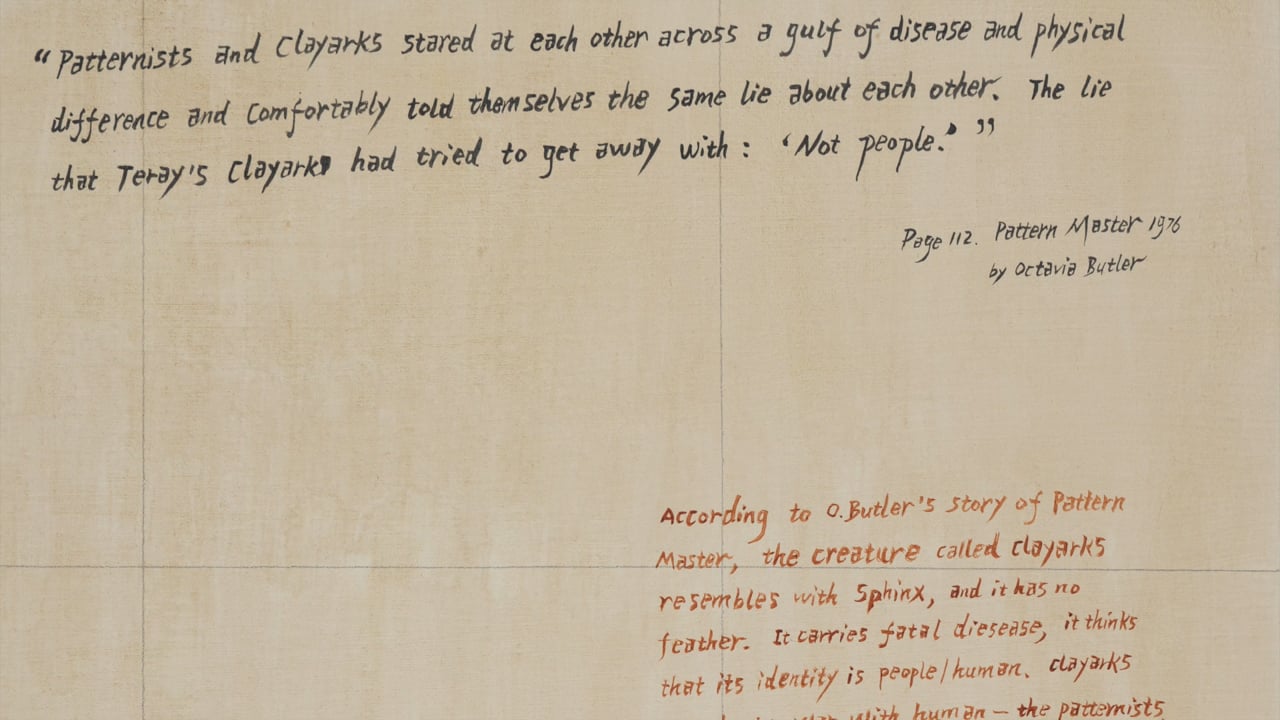 “Patternists and Clayarks stared at each other across a gulf of disease and physical
difference and Comfortably told themselves the same lie about each other. The lie
that Teray's Clayark had tried to get away with : ‘Not people.’ ”
Page 112. Pattern Master 1976
by Octavia Butler
According to O.Butler's story of Pattern
Master, the creature called clayarks
resembles with Sphinx, and it has no
feather. It carries fatal diesease, it thinks
that its identity is people/human. clayarks
with human – the patternists